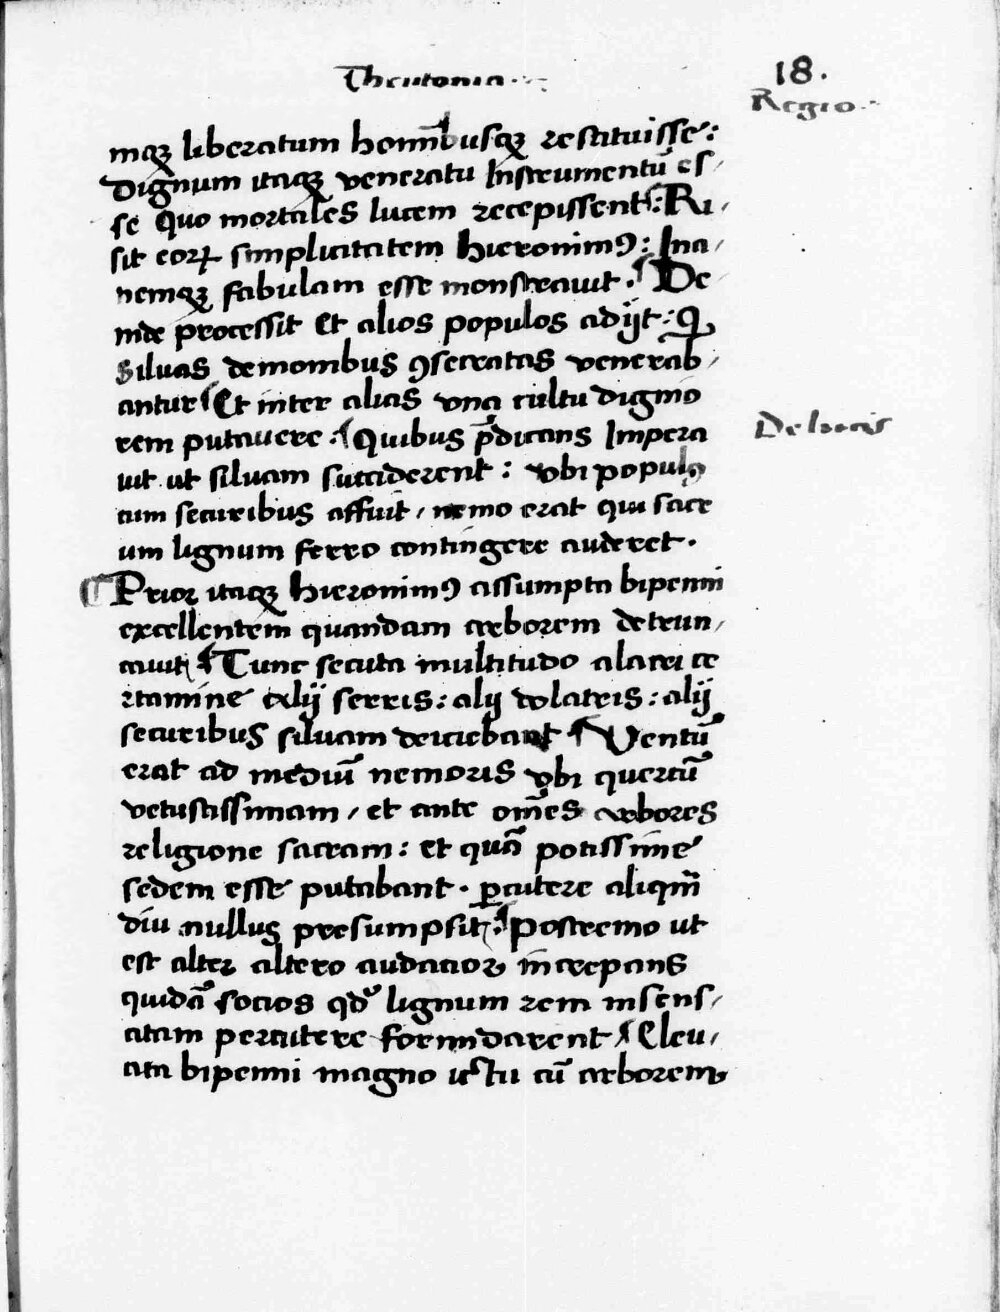 Theutonia
18.
Regio
mqꝫ liberatum hominibusqꝫ restituisse:
dignum itaqꝫ veneratu Instrumentū es/
se quo mortales lucem recepissent: Ri/
sit eoꝝ simplicitatem hieronimꝰ: Ina/
nemqꝫ fabulam esse monstrauit. De/
inde processit Et alios populos adijt: q̄
siluas demonibus ꝯsecratas venerab/
antur Et inter alias vnā cultu dignio
rem putauere: Quibus p̄dicans Impera
uit ut siluam succiderent: vbi populꝰ
cum securibus affuit / nemo erat qui sacr
um lignum ferro contingere auderet.
¶ Prior itaqꝫ hieronimꝰ assumpta bipenni
excellentem quandam arborem detrun/
cauit Tunc secuta multitudo alacri ce
rtamine alij serris: alij dolabris: alij
securibus siluam deiciebant Ventū
erat ad mediū nemoris vbi quercū
vetustissimam / et ante om̄es arbores
religione sacram: et quā potissime
sedem esse putabant. ꝑcutere aliqm̄
diu nullus presumpsit. Postremo ut
est alter altero audacior increpans
quidā socios qd' lignum rem insens/
atam percutere formidarent Eleu/
ata bipenni magno ictu cū arborem
De lucis